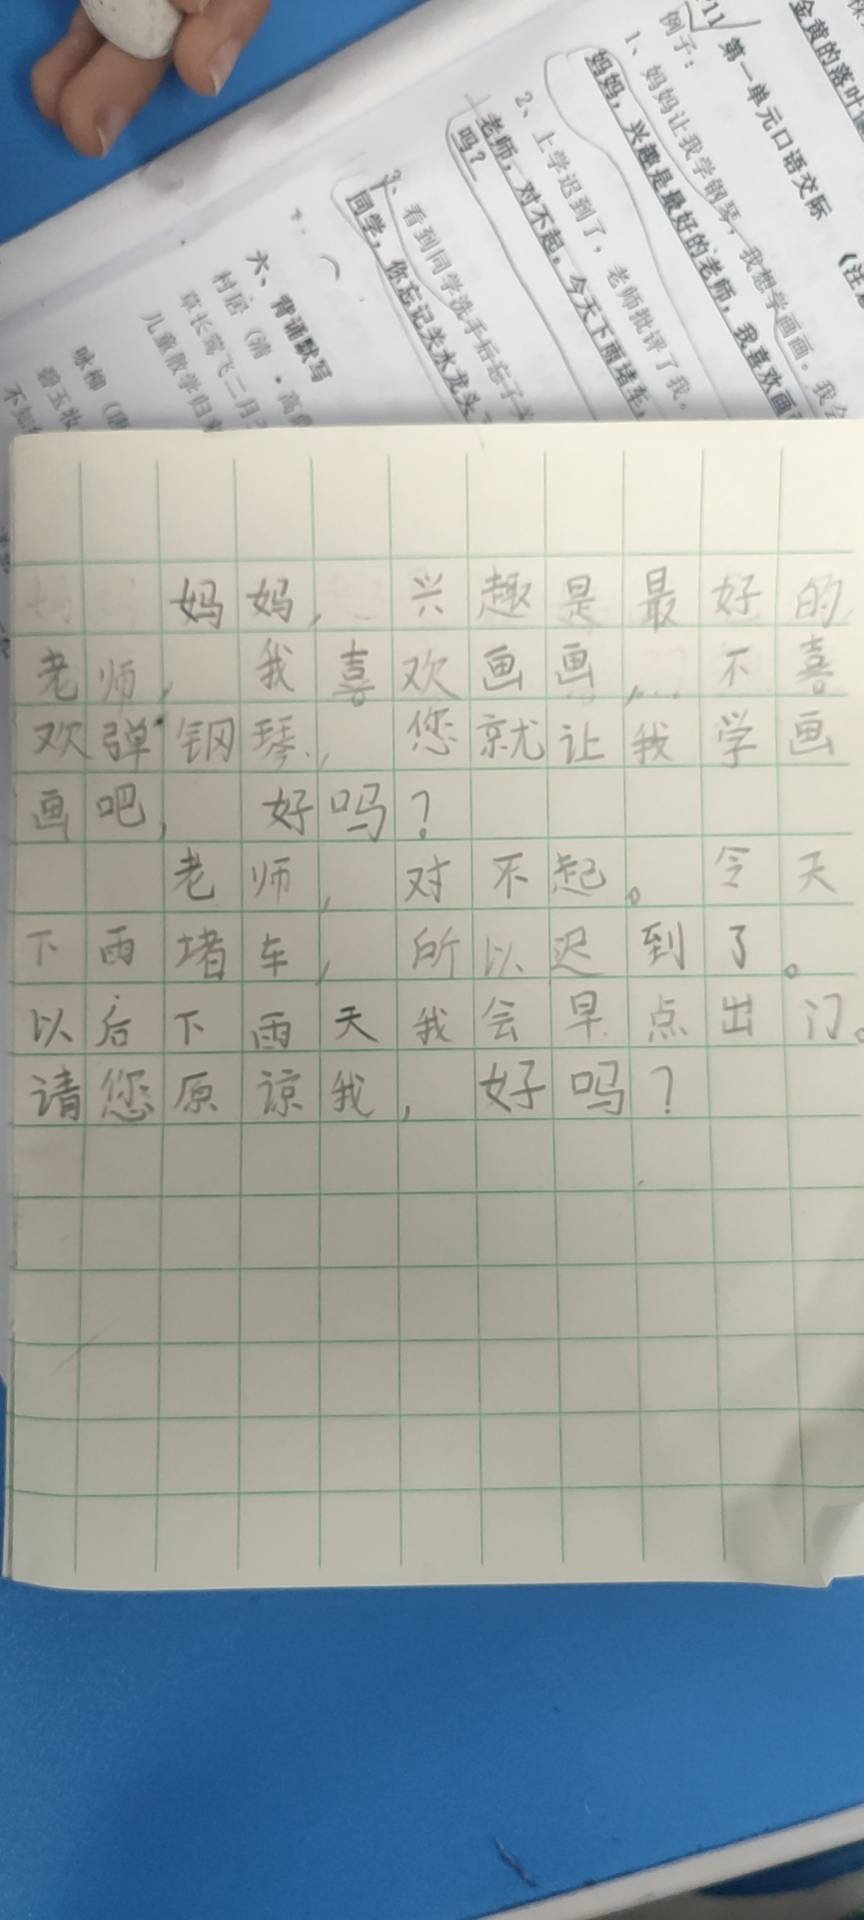 第一单元口语交际
例子：
1、妈妈让我学钢琴，我想学画画。我会
妈妈，兴趣是最好的老师，我喜欢画
2、上学迟到了，老师批评了我。
老师，对不起。今天下雨堵车，
吗？
3、看到同学洗手后忘了关
同学，你忘记关水龙头
六、背诵默写
村居（清·高鼎
草长莺飞二月
儿童散学归来
咏柳（唐
碧玉妆
不知细
金黄的落叶
妈妈，兴趣是最好的
老师，我喜欢画画，不喜
欢弹钢琴，您就让我学画
画吧，好吗？
老师，对不起。今天
下雨堵车，所以迟到了。
以后下雨天我会早点出门。
请您原谅我，好吗？